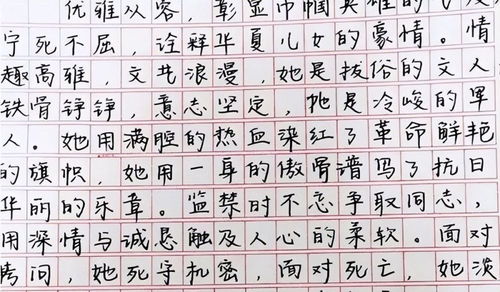 优雅从容，彰显巾帼英雄的
宁死不屈，诠释华夏儿女的豪情。情
趣高雅，文艺浪漫，她是拔俗的文人
铁骨铮铮，意志坚定，她是冷峻的军
人。她用满腔的热血染红了革命鲜艳
的旗帜，她用一身的傲骨谱写了抗日
华丽的乐章。监禁时不忘争取同志，
用深情与诚恳触及人心的柔软。面对
拷问，她死守机密，面对死亡，她淡